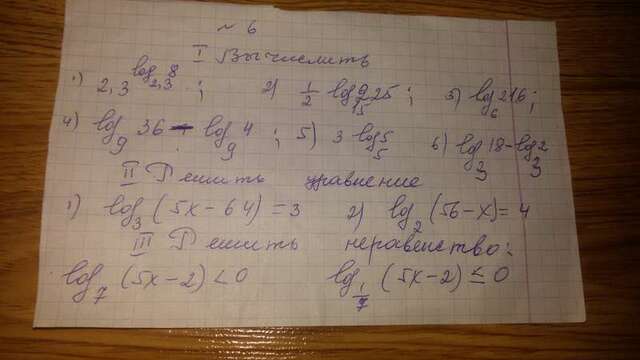 № 6
I Вычислить
1) 2,3^(log_2,3 8) ; 2) 1/2 log_(9/15) 25 ; 3) log_6 216 ;
4) log_9 36 - log_9 4 ; 5) 3 log_5 5 6) log_3 18 - log_3 2
II Решить уравнение
1) log_3 (5x - 64) = 3 2) log_2 (56 - x) = 4
III Решить неравенство:
log_7 (5x - 2) < 0 log_(1/7) (5x - 2) ≤ 0